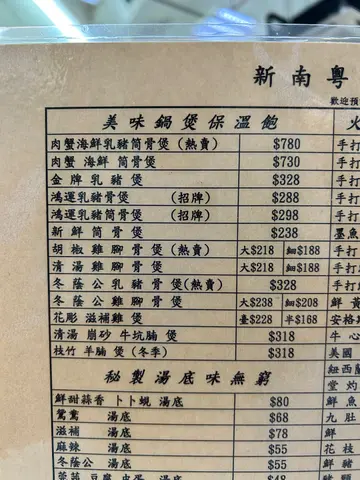 新南粵
歡迎預
美味鍋煲保溫飽
肉蟹海鮮乳豬筒骨煲(熱賣) $780 手打
肉蟹 海鮮 筒骨煲 $730 手打
金牌乳豬煲 $328 手打
鴻運乳豬骨煲 (招牌) $288 手打
鴻運乳豬筒骨煲 (招牌) $298 手打
新鮮筒骨煲 $238 墨魚
胡椒雞腳骨煲(熱賣) 大$218 細$188 手打
清湯雞腳骨煲 大$218 細$188 手打
冬蔭公乳豬骨煲(熱賣) $328 手打
冬蔭公雞腳骨煲 大$238 細$208 鮮
花彫 滋補雞煲 壹$228 半$168 安格
清湯 崩砂 牛坑腩 煲 $318 牛心
枝竹 羊腩 煲 (冬季) $318 美國
紐西
秘製湯底味無窮 堂灼
鮮甜蒜香 卜卜蜆 湯底 $80 鮮魚
鴛鴦 湯底 $68 九肚
滋補 湯底 $78 鮮
麻辣 湯底 $55 花枝
冬蔭公 湯底 $55 鮮豬
芫茜 豆腐 皮蛋 湯底 $48 豬